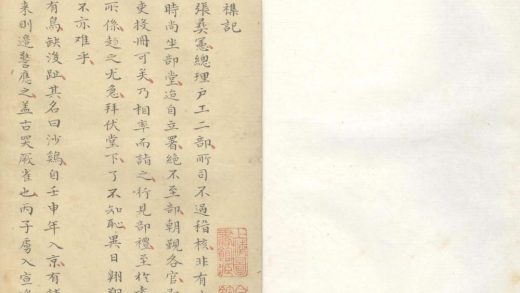 襍記
張彞憲總理戶工二部所司不過稽核非有
時尚坐部堂迨自立署絕不至部朝觀各官
吏投冊可矣乃相率而詣之行見部禮至於
所係趨之尤急拜伏堂下了不知恥異日翱翔
不亦难乎
有鳥缺後趾其名曰沙鷄自壬申年入京有
来則邊警應之盖古罘厥雀也丙子虜入宣